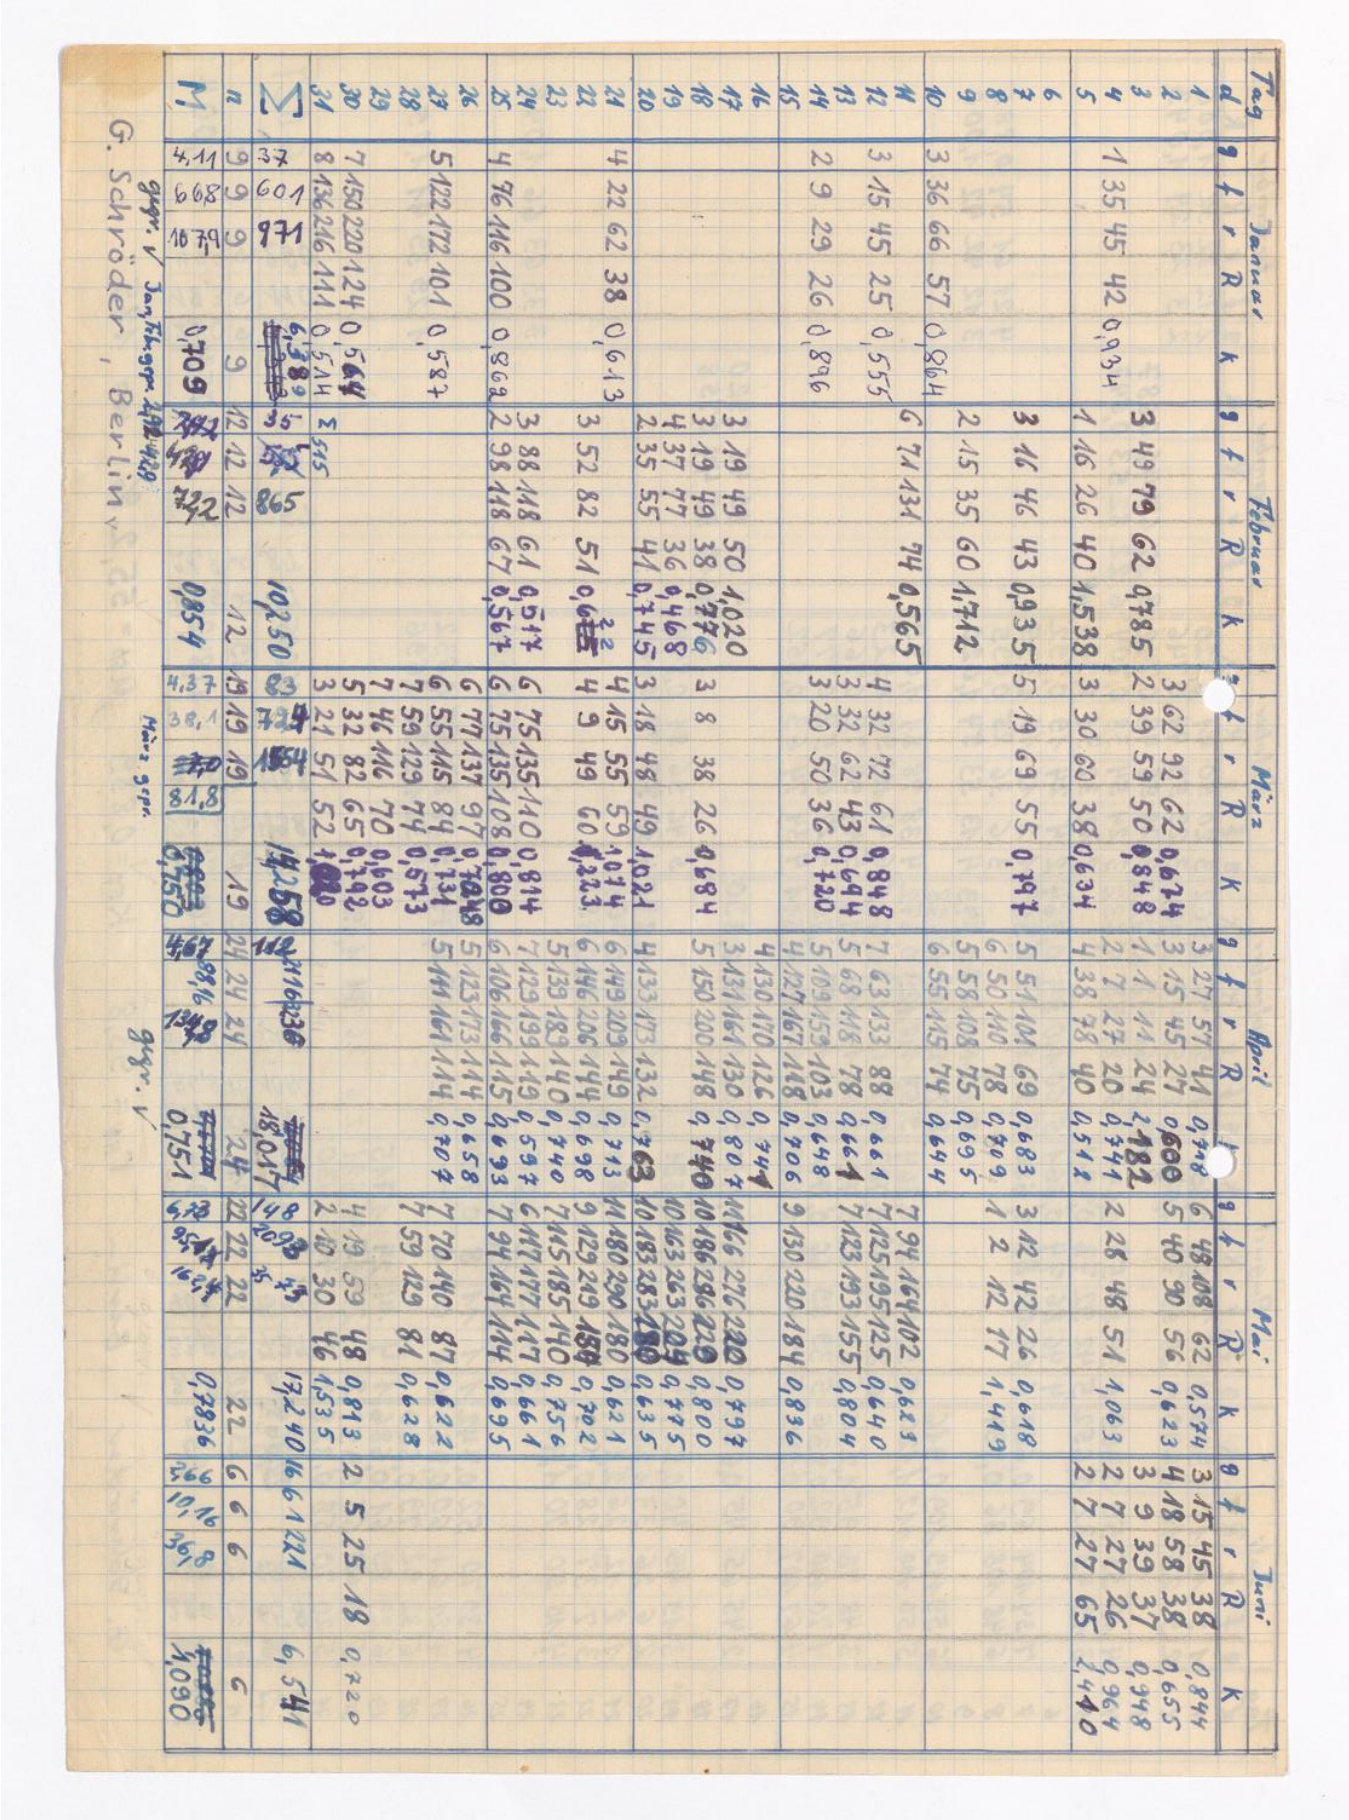 Tag Januar Februar März April Mai Juni
d g f r R k g f r R k g f r R k g f r R k g f r R k g f r R k
1 3 27 57 41 0,748 6 48 108 62 0,574 3 15 45 38 0,844
2 3 62 92 62 0,674 3 15 45 27 0,600 5 40 90 56 0,623 4 18 58 38 0,655
3 3 49 79 62 0,785 2 39 59 50 0,848 1 1 11 24 2,182 3 9 39 37 0,948
4 1 35 45 42 0,934 2 7 27 20 0,741 2 28 48 51 1,063 2 7 27 26 0,964
5 1 16 26 40 1,538 3 30 60 38 0,634 4 38 78 40 0,512 2 7 27 65 2,410
6
7 3 16 46 43 0,935 5 19 69 55 0,797 5 51 101 69 0,683 3 12 42 26 0,618
8 6 50 110 78 0,709 1 2 12 17 1,419
9 2 15 35 60 1,712 5 58 108 75 0,695
10 3 36 66 57 0,864 6 55 115 74 0,644
11 6 71 131 74 0,565 7 94 164 102 0,623
12 3 15 45 25 0,555 4 32 72 61 0,848 7 63 133 88 0,661 7 125 195 125 0,640
13 3 32 62 43 0,694 5 68 118 78 0,661 7 123 193 155 0,804
14 2 9 29 26 0,896 3 20 50 36 0,720 5 109 159 103 0,648
15 4 127 167 118 0,706 9 130 220 184 0,836
16 4 130 170 126 0,741
17 3 19 49 50 1,020 3 131 161 130 0,807 11 166 276 220 0,797
18 3 19 49 38 0,776 3 8 38 26 0,684 5 150 200 148 0,740 10 186 286 229 0,800
19 4 37 77 36 0,468 10 163 263 204 0,775
20 2 35 55 41 0,745 3 18 48 49 1,021 4 133 173 132 0,763 10 183 283 180 0,635
21 4 22 62 38 0,613 4 15 55 59 1,074 6 149 209 149 0,713 11 180 290 180 0,621
22 3 52 82 51 0,622 4 9 49 60 1,223 6 146 206 144 0,698 9 129 219 154 0,702
23 5 139 189 140 0,740 7 115 185 140 0,756
24 3 88 118 61 0,517 6 75 135 110 0,814 7 129 199 119 0,597 6 117 177 117 0,661
25 4 76 116 100 0,862 2 98 118 67 0,567 6 75 135 108 0,800 6 106 166 115 0,693 7 94 164 114 0,695
26 6 77 137 97 0,708 5 123 173 114 0,658
27 5 122 172 101 0,587 6 55 115 84 0,731 5 111 161 114 0,707 7 70 140 87 0,622
28 7 59 129 74 0,573 7 59 129 81 0,628
29 7 46 116 70 0,603
30 7 150 220 124 0,564 5 32 82 65 0,792 4 19 59 48 0,813 2 5 25 18 0,720
31 8 136 216 111 0,514 Σ 515 3 21 51 52 1,020 2 10 30 46 1,535
Σ 37 601 971 6,389 35 865 10,250 83 724 1554 14,258 112 2116 3236 18,017 148 2093 3573 17,240 16 61 221 6,541
n 9 9 9 9 12 12 12 12 19 19 19 19 24 24 24 24 22 22 22 22 6 6 6 6
M. 4,11 66,8 107,9 0,709 2,92 72,2 0,854 4,37 38,1 81,8 0,750 4,67 88,16 134,8 0,751 6,73 95,1 162,4 0,7836 2,66 10,16 36,8 1,090
gepr. √ Jan, Feb. gepr. März gepr. gepr. √
G. Schröder, Berlin